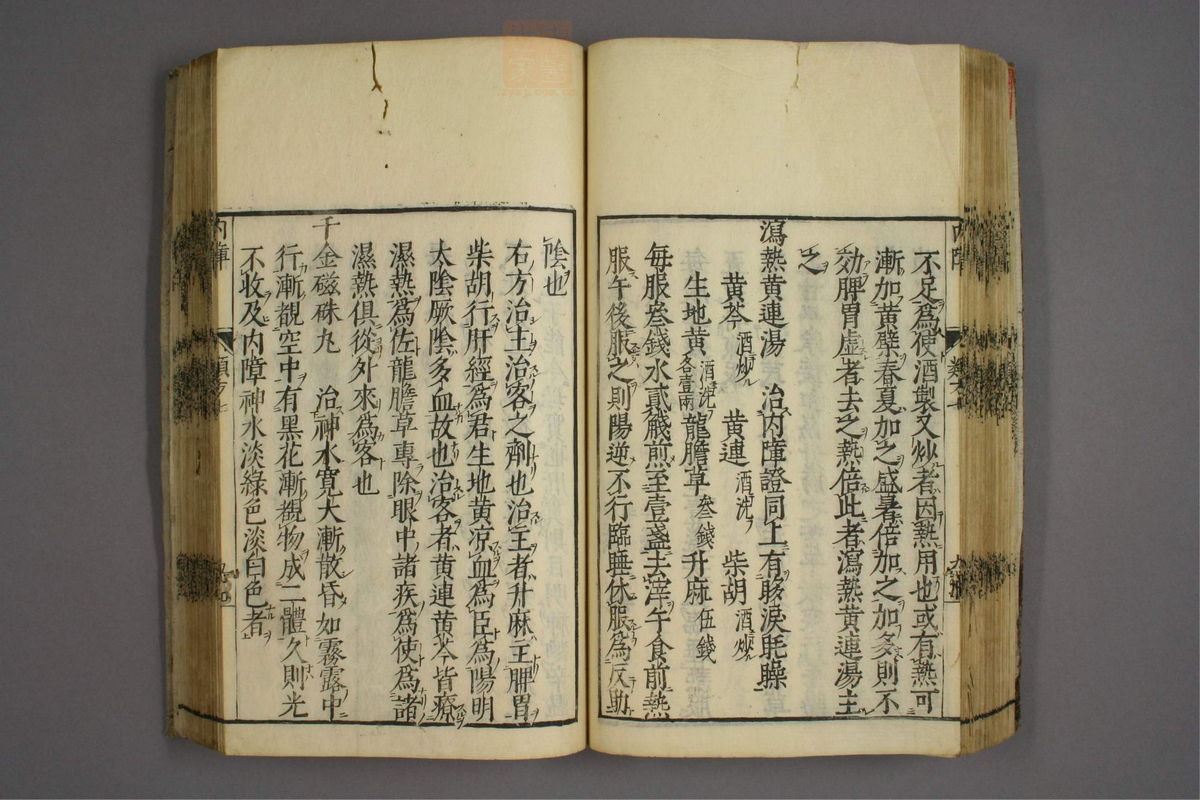 不足爲使酒製又炒者因熱用也或有熱可
漸加黃蘗春夏加之盛暑倍加之加多則不
効脾胃虛者去之熱倍此者瀉熱黃連湯主
之
瀉熱黃連湯　治內障證同上有眵淚眊矂
黃芩酒炒　黃連酒洗　柴胡酒炒
生地黃酒洗各壹兩　龍膽草叁錢　升麻伍錢
每服叁錢水貳盞煎至壹盞去滓午食前熱
服午後服之則陽逆不行臨睡休服爲反助
陰也
右方治主治客之劑也治主者升麻主脾胃
柴胡行肝經爲君生地黃凉血爲臣爲陽明
太陰厥陰多血故也治客者黃連黃芩皆療
濕熱爲佐龍膽草專除眼中諸疾爲使爲諸
濕熱俱從外來爲客也
千金磁硃丸　治神水寬大漸散昏如霧露中
行漸覩空中有黑花漸覩物成二體久則光
不收及內障神水淡綠色淡白色者